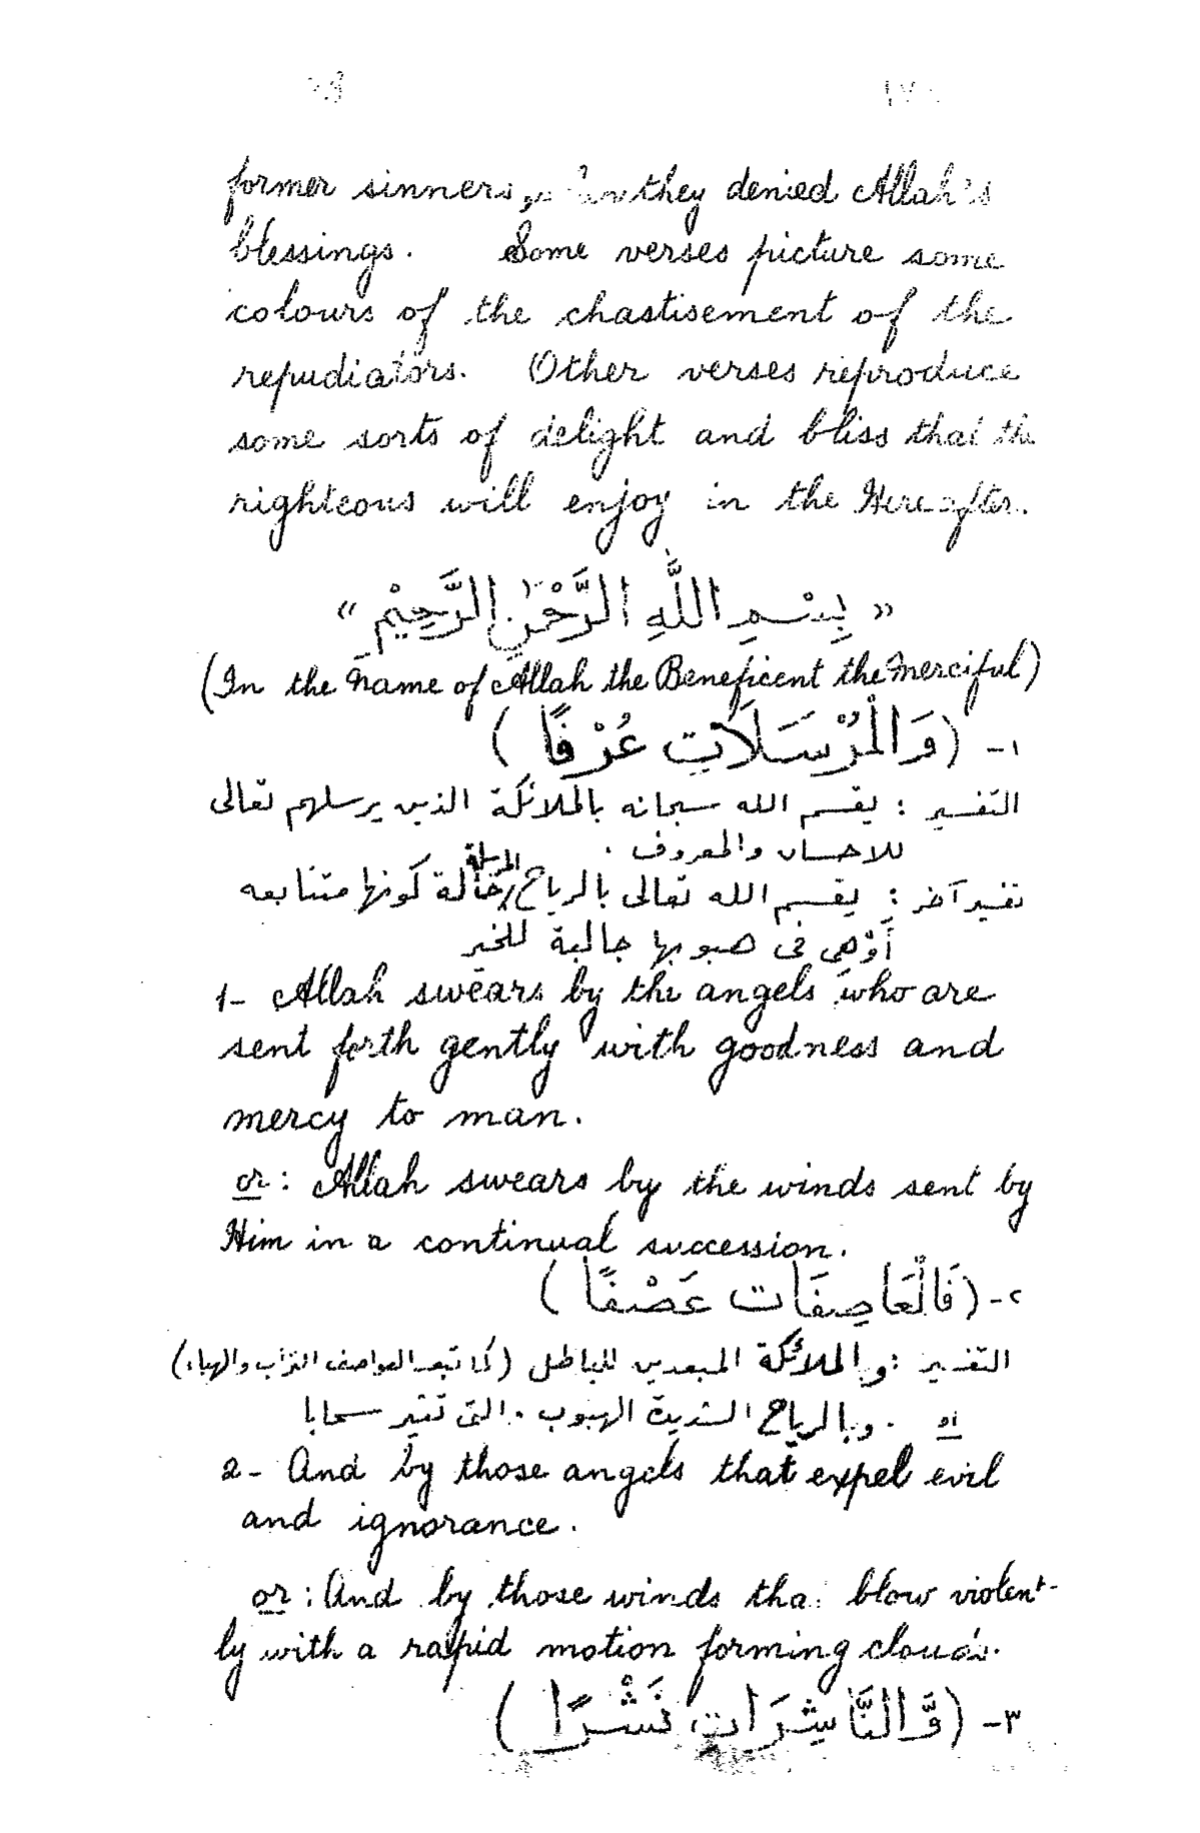 former sinners, they denied Allah's
blessings. Some verses picture some
colours of the chastisement of the
repudiators. Other verses reproduce
some sorts of delight and bliss that the
righteous will enjoy in the Hereafter.
« بِسْمِ اللَّهِ الرَّحْمٰنِ الرَّحِيْمِ »
(In the Name of Allah the Beneficent the Merciful)
١- (وَالْمُرْسَلَاتِ عُرْفًا)
التفسير : يقسم الله سبحانه بالملائكة الذين يرسلهم تعالى
للاحسان والمعروف .
تفسير آخر : يقسم الله تعالى بالرياح المرسلة حالة كونها متتابعه
أَوْهِي فى هبوبها جالبة للخير
1- Allah swears by the angels who are
sent forth gently with goodness and
mercy to man.
or: Allah swears by the winds sent by
Him in a continual succession.
٢- (فَالْعَاصِفَات عَصْفًا)
التفسير : والملائكة المبعدين للباطل (كما تبعد العواصف التراب والهباء)
او . وبالرياح الشديدة الهبوب . التى تثير سحابا
2- And by those angels that expel evil
and ignorance.
or: And by those winds tha blow violent-
ly with a rapid motion forming clouds.
٣- (وَّالنَّاشِرَاتِ نَشْرًا)